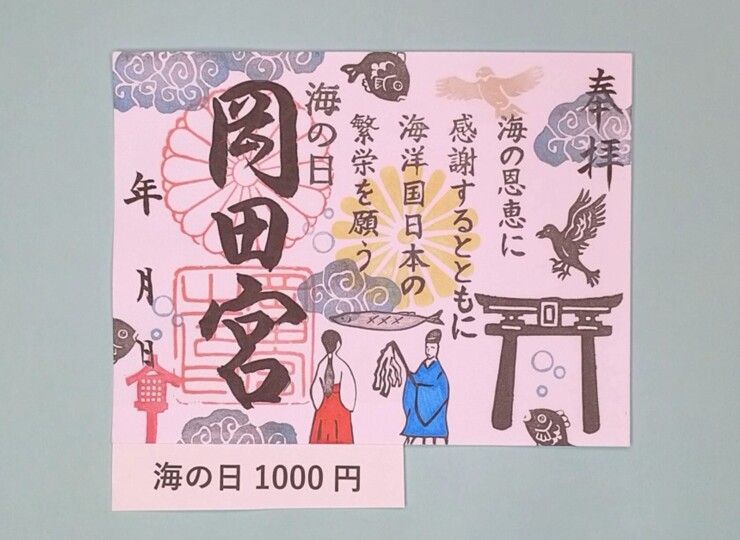 奉拝
海の恩恵に
感謝するとともに
海洋国日本の
繁栄を願う
海の日
岡田宮
年 月 日
海の日 1000 円